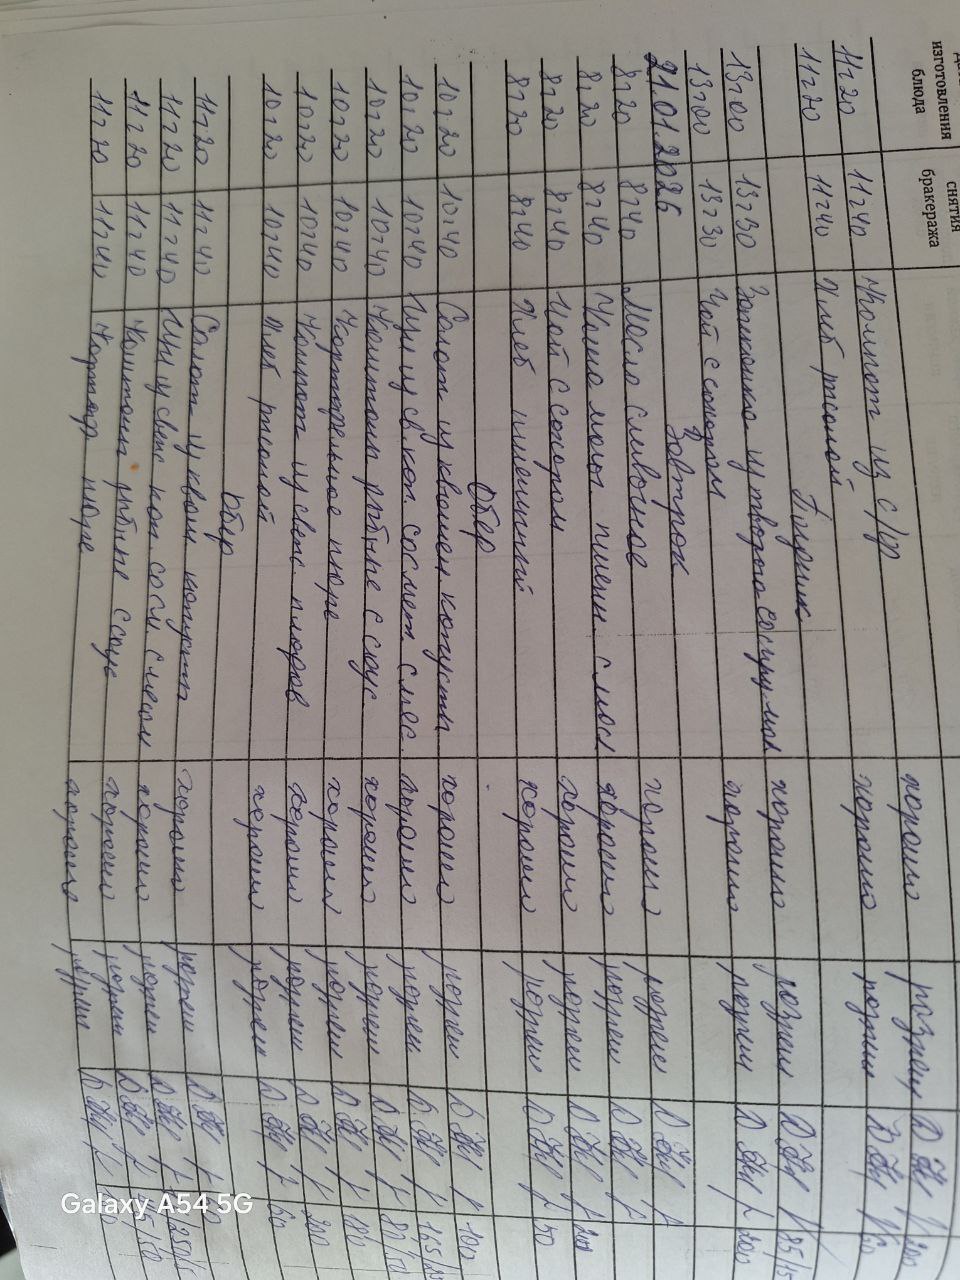 изготовления
блюда
снятия
бракеража
11⁻20 11⁻40 Компот из с/ф хорошо разреш 200
11⁻20 11⁻40 Хлеб ржаной хорошо разреш 50
Полдник
13⁻00 13⁻30 Запеканка из творога со сгущ мол хорошо разреш 85/15
13⁻00 13⁻30 Чай с сахаром хорошо разреш 200
21.01.2026 Завтрак
8⁻20 8⁻40 Масло сливочное хорошо разреш
8⁻20 8⁻40 Каша молоч. пшенн. с масл хорошо разреш
8⁻20 8⁻40 Чай с сахаром хорошо разреш 200
8⁻20 8⁻40 Хлеб пшеничный хорошо разреш 50
Обед
10⁻20 10⁻40 Салат из квашен капусты хорошо разреш 100
10⁻20 10⁻40 Щи из св. кап. со смет. с мяс. хорошо разреш
10⁻20 10⁻40 Котлеты рыбные с соус хорошо разреш
10⁻20 10⁻40 Картофельное пюре хорошо разреш 180
10⁻20 10⁻40 Компот из свеж. плодов хорошо разреш 200
10⁻20 10⁻40 Хлеб ржаной хорошо разреш 50
Обед
11⁻20 11⁻40 Салат из кваш капусты хорошо разреш
11⁻20 11⁻40 Щи из свеж кап. со см. с мясом хорошо разреш
11⁻20 11⁻40 Котлеты рыбные с соус хорошо разреш
11⁻20 11⁻40 Картоф пюре хорошо разреш
Galaxy A54 5G